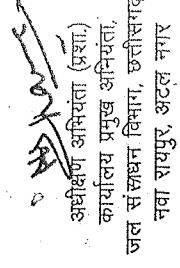 अधीक्षण अभियंता (प्रशा.)
कार्यालय प्रमुख अभियंता,
जल संसाधन विभाग, छत्तीसगढ़
नवा रायपुर, अटल नगर